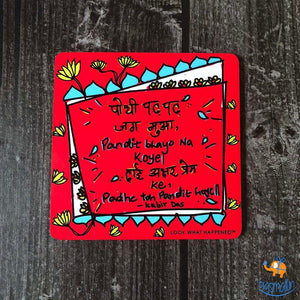 पोथी पढ़ पढ़
जग मुआ,
Pandit bhayo Na
Koyel
ढाई अक्षर प्रेम
के,
Padhe toh Pandit hoyel
- Kabir Das
LOOK WHAT HAPPENED